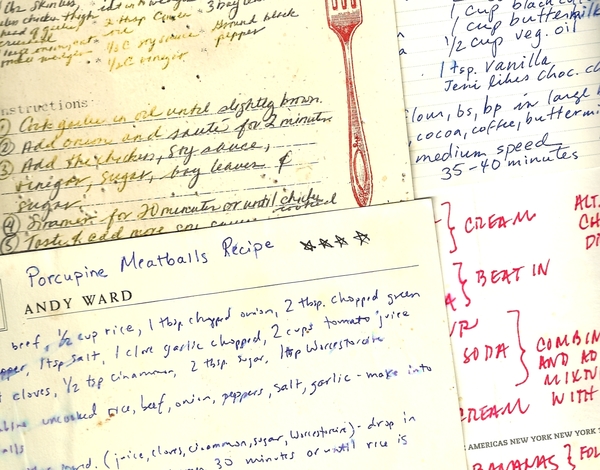 chicken thighs
3 bay
ground black
pepper
vinegar
Instructions
① Cook garlic in oil until slightly brown.
② Add onion and saute for 2 minutes
③ Add the chicken, soy sauce,
vinegar, sugar, bay leaves &
sugar.
④ Simmer for 20 minutes or until chicken
cooked
⑤ Taste & add more soy
Porcupine Meatballs Recipe ☆☆☆☆
ANDY WARD
beef, 1/2 cup rice, 1 tbsp chopped onion, 2 tbsp. chopped green
1 tsp salt, 1 clove garlic chopped, 2 cups tomato juice
cloves, 1/2 tsp cinnamon, 2 tbsp sugar, 1 tbsp Worcestershire
uncooked rice, beef, onion, peppers, salt, garlic - make into
(juice, cloves, cinnamon, sugar, Worcestershire) - drop in
30 minutes or until rice is
1 cup black
1 cup buttermilk
1/2 cup veg. oil
1 tsp. vanilla
Jeni likes choc. ch
flour, bs, bp in large
cocoa, coffee, buttermi
medium speed
35-40 minutes
} CREAM
ALT
CH
} BEAT IN
SODA
COMBIN
AND AD
MIXTU
WITH
CREAM
AMERICAS NEW YORK NEW YORK
BANANAS } FOL